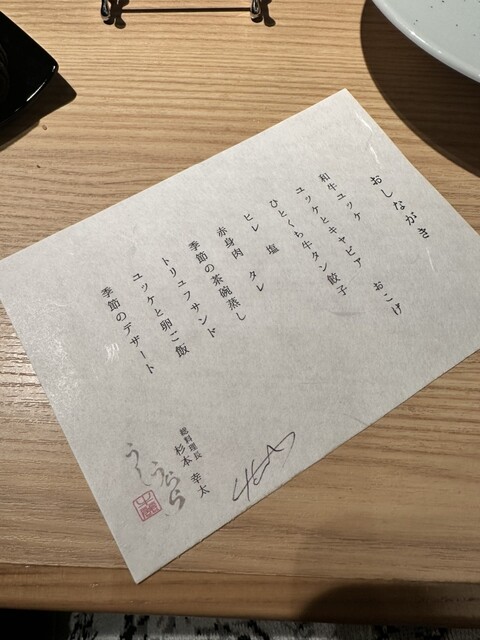 おしながき
和牛ユッケ
ユッケとキャビア　おこげ
ひとくち牛タン餃子
ヒレ　塩　タレ
赤身肉
季節の茶碗蒸し
トリュフサンド
ユッケと卵ご飯
季節のデザート
総料理長
杉本　幸太
うしうらら